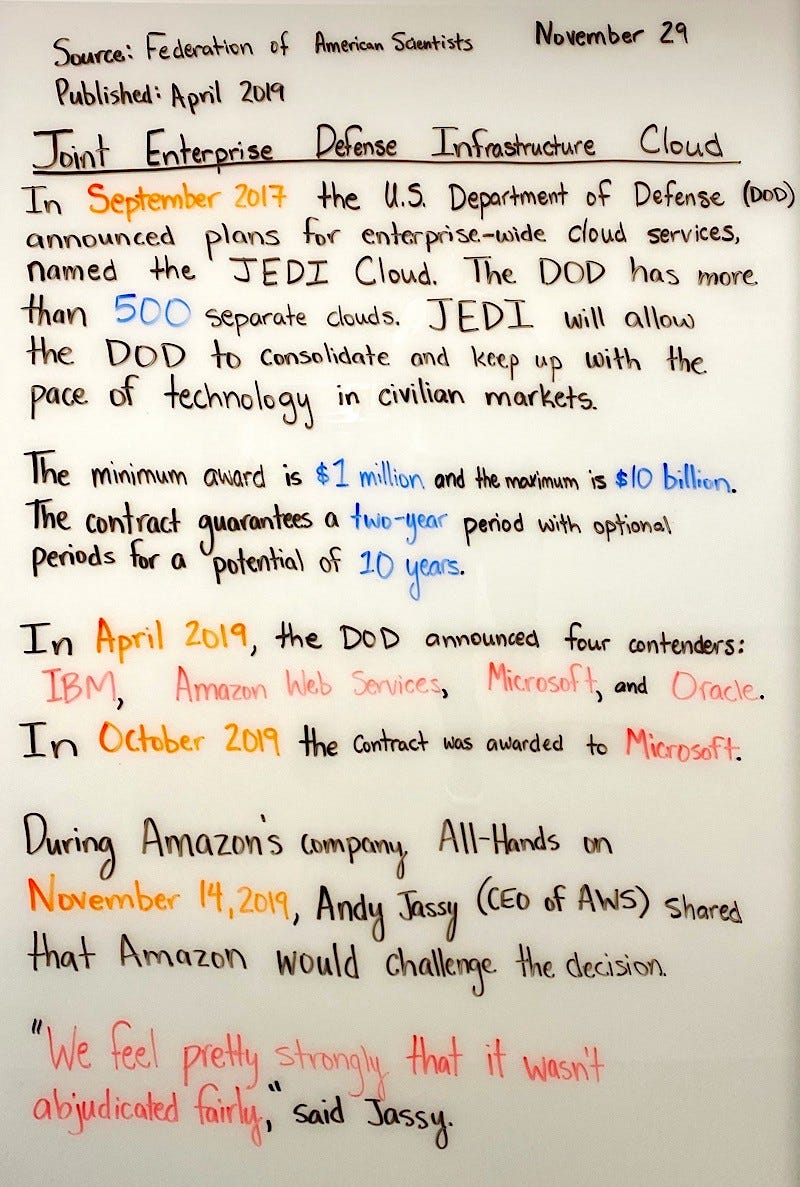 Source: Federation of American Scientists November 29
Published: April 2019
Joint Enterprise Defense Infrastructure Cloud
In September 2017 the U.S. Department of Defense (DOD)
announced plans for enterprise-wide cloud services,
named the JEDI Cloud. The DOD has more
than 500 separate clouds. JEDI will allow
the DOD to consolidate and keep up with the
pace of technology in civilian markets.
The minimum award is $1 million and the maximum is $10 billion.
The contract guarantees a two-year period with optional
periods for a potential of 10 years.
In April 2019, the DOD announced four contenders:
IBM, Amazon Web Services, Microsoft, and Oracle.
In October 2019 the contract was awarded to Microsoft.
During Amazon's company All-Hands on
November 14, 2019, Andy Jassy (CEO of AWS) shared
that Amazon would challenge the decision.
"We feel pretty strongly that it wasn't
abjudicated fairly," said Jassy.